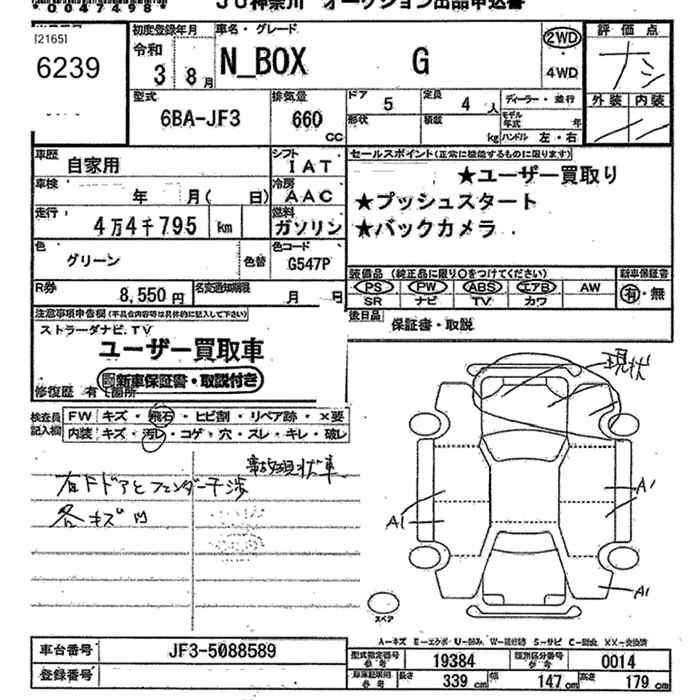 *0047498*
JU神奈川 オークション出品申込書
[2165]
6239
初度登録年月
令和
3 8月
車名・グレード
N_BOX G
2WD
・
4WD
評価点
ナシ
外装 内装
型式
6BA-JF3
排気量
660
CC
ドア 5
定員 4 人
ディーラー・並行
形状
積載
kg
モデル年式 年
ハンドル 左・右
車歴
自家用
シフト
IAT
車検
年 月( 日)
冷房
AAC
走行
4万4千795 km
燃料
ガソリン
色
グリーン
色替
色コード
G547P
R券
8,550円
名変通知期限
月 日
セールスポイント(正常に機能するものに限ります)
★ユーザー買取り
★プッシュスタート
★バックカメラ
装備品(純正品に限り〇をつけてください)
PS PW ABS エアB AW
SR ナビ TV カワ
新車保証書
有・無
後日品
保証書・取説
注意事項申告欄(不具合内容等は具体的に記入して下さい)
ストラーダナビ、TV
ユーザー買取車
新車保証書・取説付き
修復歴 有 箇所
検査員
記入欄
FW キズ・飛石・ヒビ割・リペア跡・×要
内装 キズ・汚レ・コゲ・穴・スレ・キレ・破レ
事故現状車
右Fドアとフェンダー干渉
各キズ凹
現状
A1
A1
A1
スペア
A-キズ E-エクボ U-凹み W-補修跡 S-サビ C-腐蝕 XX-交換済
車台番号
JF3-5088589
登録番号
型式指定番号
参考
19384
類別区分番号
参考
0014
車庫証明用
参考
長さ 339 cm
幅 147 cm
高さ 179 cm